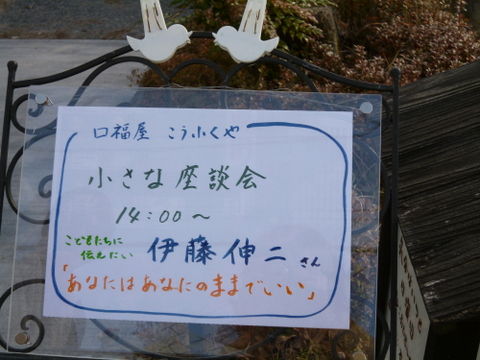 口福屋 こうふくや
小さな座談会
14:00～
こどもたちに
伝えたい
伊藤伸二さん
「あなたはあなたのままでいい」